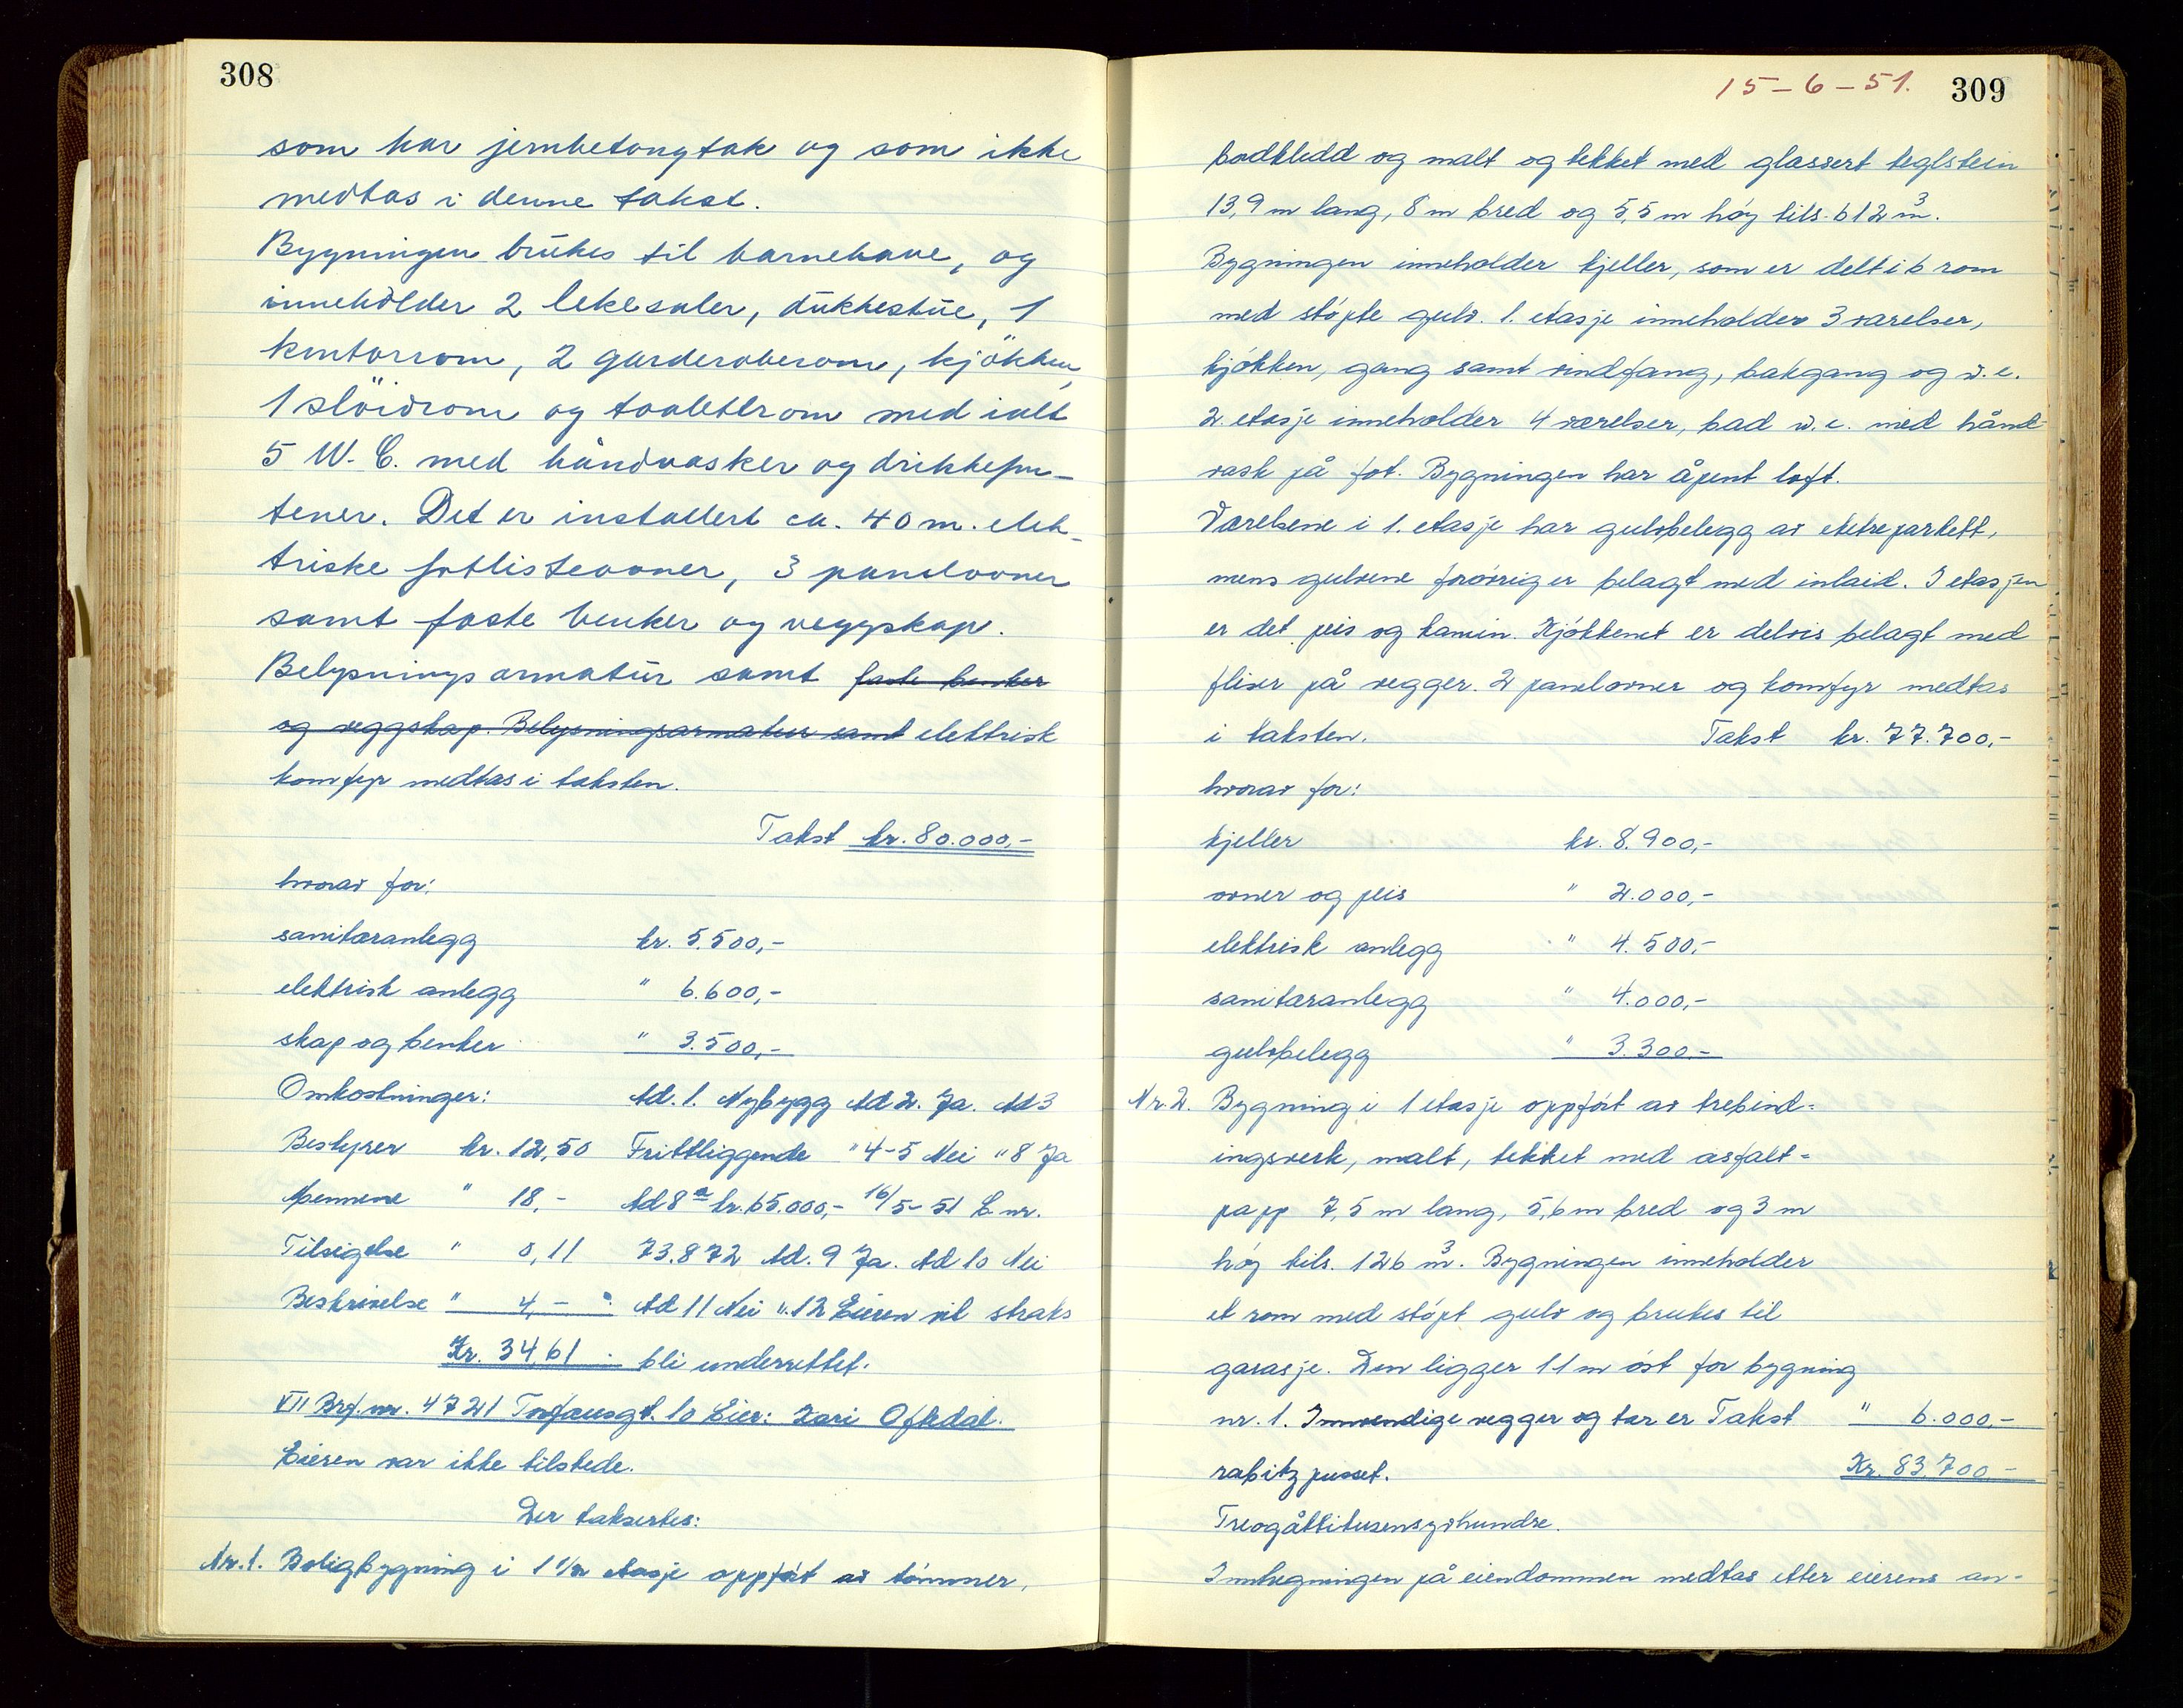 308
som har jernbetongtak og som ikke
medtas i denne takst.
Bygningen brukes til barnehave, og
inneholder 2 lekesaler, dukkestue, 1
kontorrom, 2 garderoberom, kjökken,
1 slöidrom og toalettrom med ialt
5 W.C. med håndvasker og drikkefon-
tener. Det er installert ca. 40 m. elek-
triske fotlisteovner, 3 panelovner
samt faste benker og veggskap.
Belysningsarmatur samt faste benker
og veggskap. Belysningsarmatur samt elektrisk
komfyr medtas i taksten.
Takst kr. 80.000,-
hvorav for:
sanitæranlegg kr. 5.500,-
elektrisk anlegg " 6.600,-
skap og benker " 3.500,-
Omkostninger: Ad. 1. Nybygg Ad 2. Ja. Ad 3
Bestyrer kr. 12,50 Frittliggende " 4-5 Nei " 8 Ja
Mennene " 18,- Ad 8 a kr. 65.000,- 16/5-51 L. nr.
Tilsigelse " 0,11 73.872 Ad. 9 Ja. Ad 10 Nei
Beskrivelse " 4,- Ad 11 Nei " 12 Eieren vil straks
Kr. 34,61 bli underrettet.
VII Brf. nr. 4721 Torfæusgt. 10 Eier: Kari Oftedal.
Eieren var ikke tilstede.
Der taksertes:
Nr. 1. Boligbygning i 1 1/2 etasje oppført av tømmer,
15-6-51. 309
bordkledd og malt og tekket med glassert teglstein
13,9 m lang, 8 m bred og 5,5 m høy tils. 612 m³.
Bygningen inneholder kjeller, som er delt i 6 rom
med støpte gulv. 1. etasje inneholder 3 værelser,
kjøkken, gang samt vindfang, bakgang og w.c.
2. etasje inneholder 4 værelser, bad w.c. med hånd-
vask på fot. Bygningen har åpent loft.
Værelsene i 1. etasje har gulvbelegg av eikeparkett,
mens gulvene forøvrig er belagt med inlaid. I etasjen
er det peis og kamin. Kjøkkenet er delvis belagt med
fliser på vegger. 2 panelovner og komfyr medtas
i taksten. Takst kr. 77.700,-
hvorav for:
kjeller kr. 8.900,-
ovner og peis " 2.000,-
elektrisk anlegg " 4.500,-
sanitæranlegg " 4.000,-
gulvbelegg " 3.300,-
Nr. 2. Bygning i 1 etasje oppført av trebind=
ingsverk, malt, tekket med asfalt=
papp 7,5 m lang, 5,6 m bred og 3 m
høy tils. 126 m³. Bygningen inneholder
et rom med støpt gulv og brukes til
garasje. Den ligger 11 m øst for bygning
nr. 1. Innvendige vegger og tak er Takst " 6.000,-
rabitzpusset. Kr. 83.700,-
Treogåttitusensyvhundre.
Innhegningen på eiendommen medtas etter eierens an-